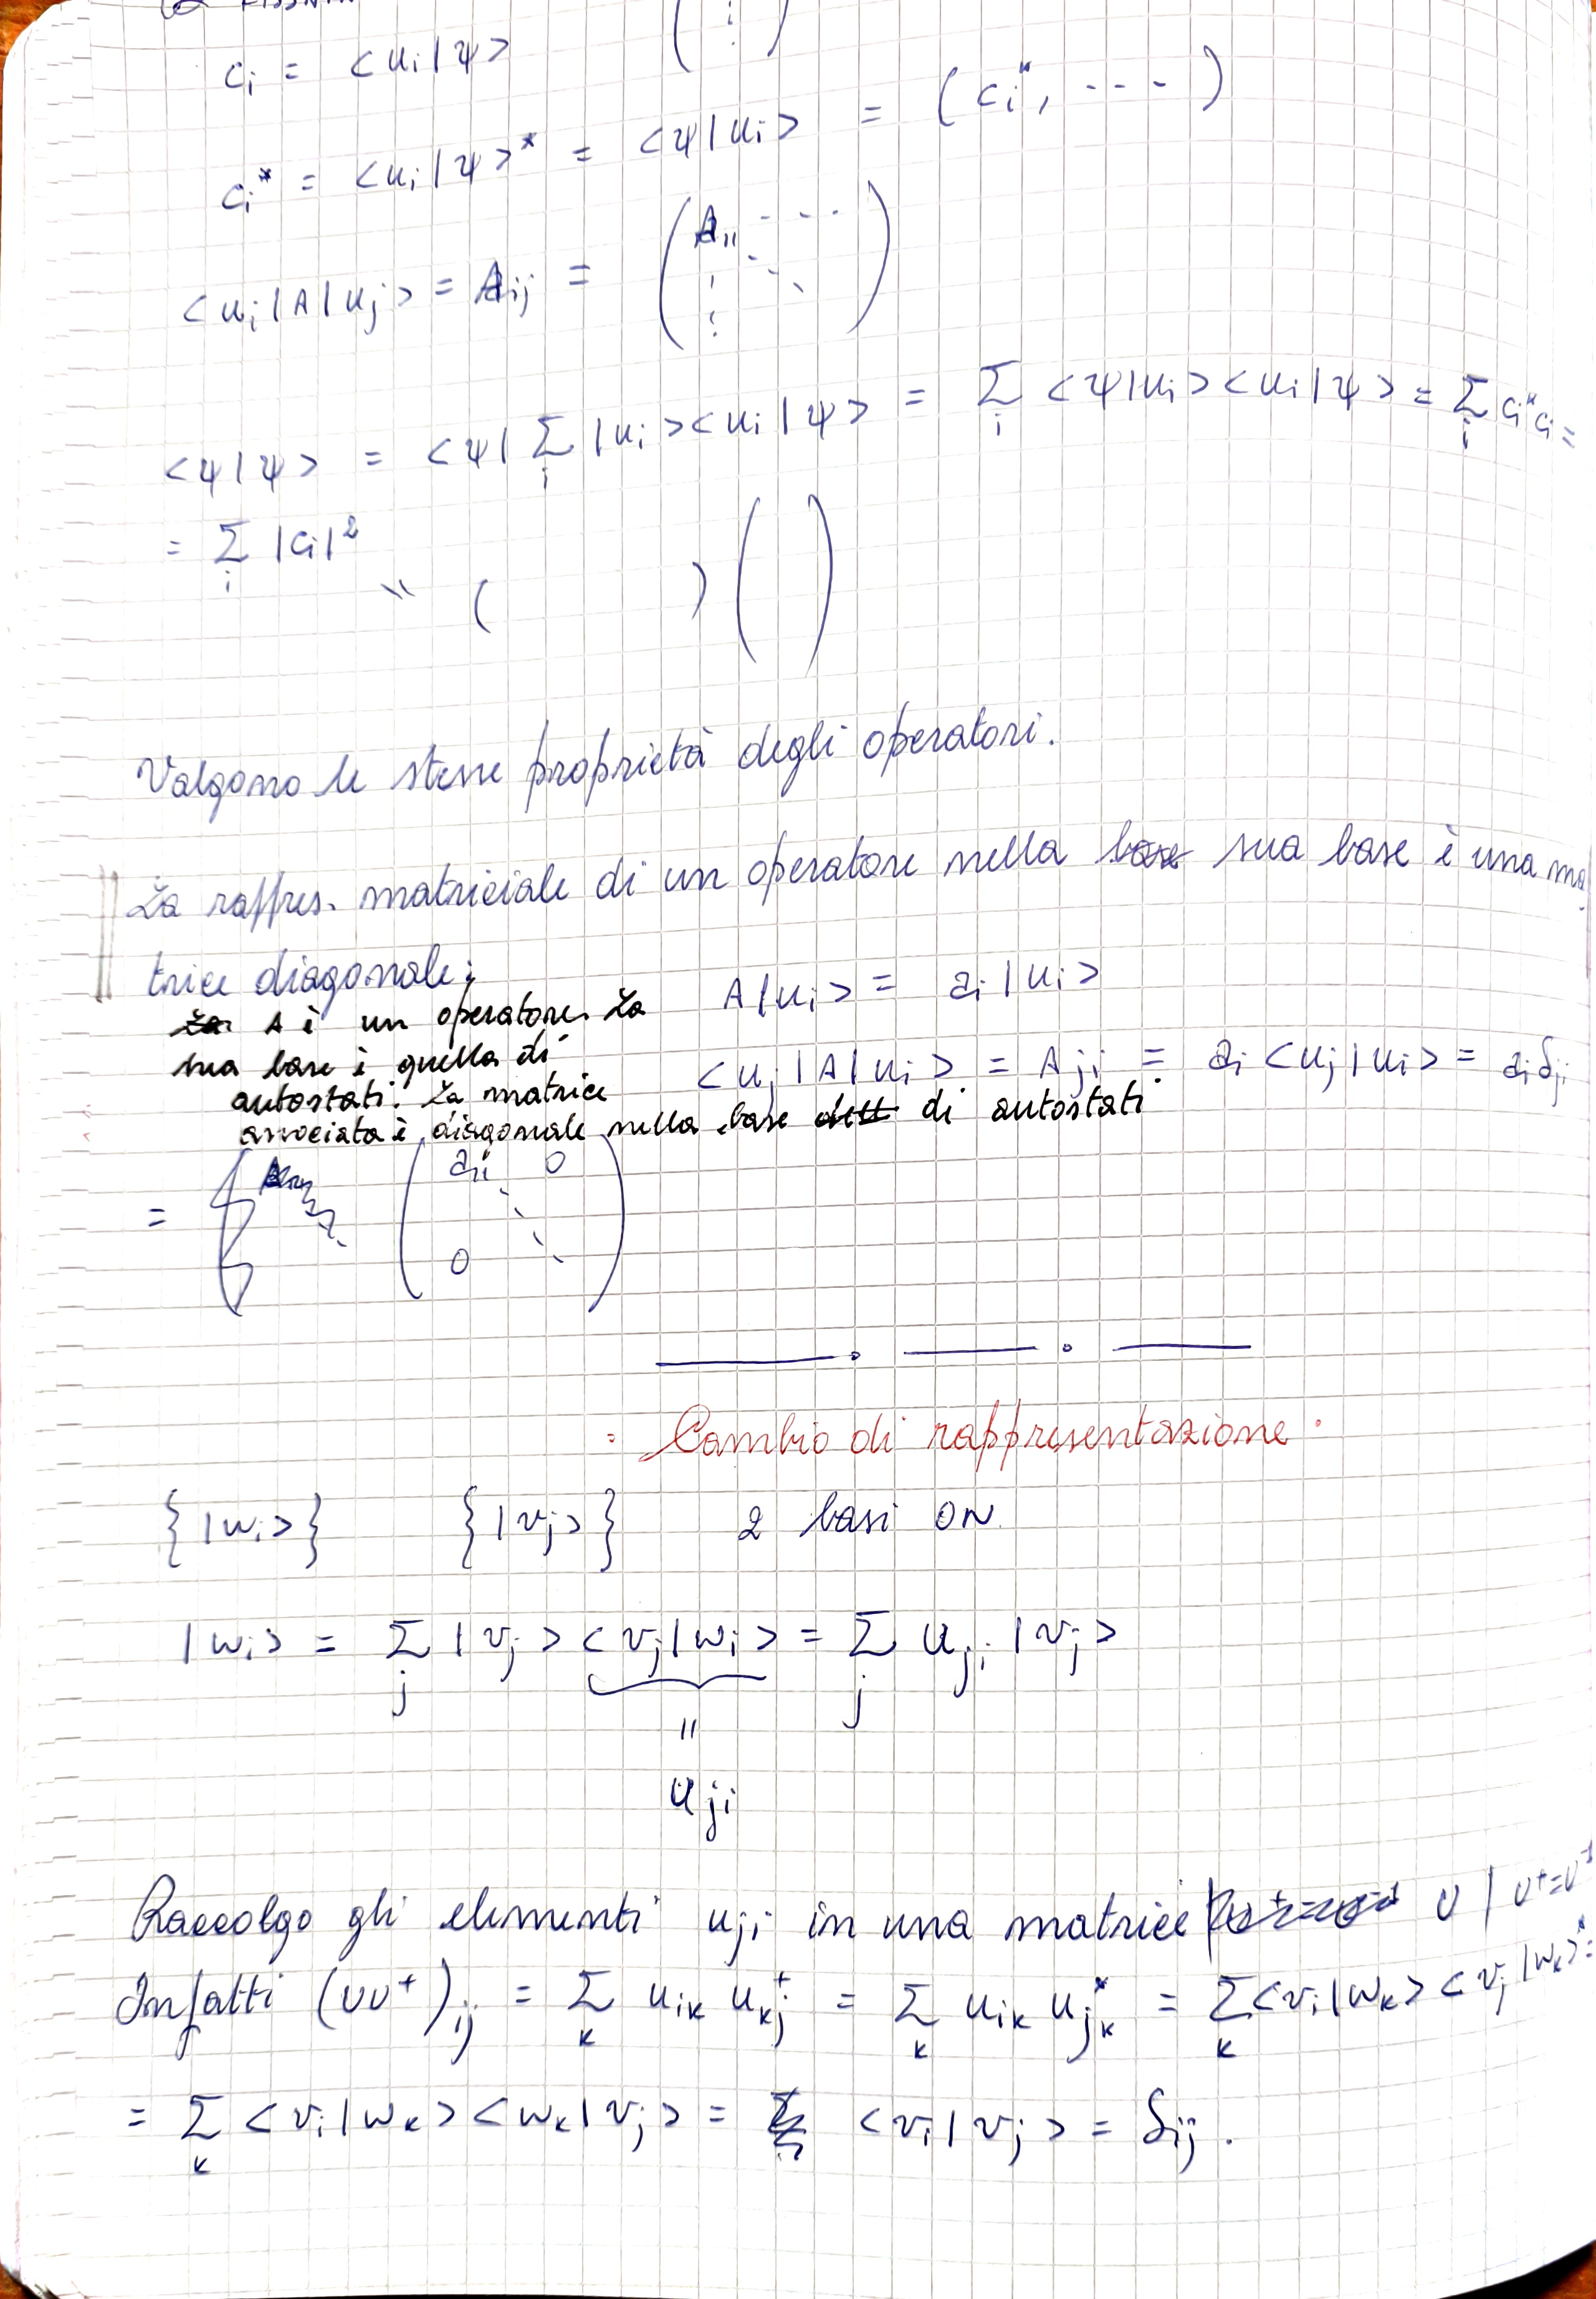 c_i = <u_i|ψ>
c_i* = <u_i|ψ>* = <ψ|u_i> = (c_i*, ---)
<u_i|A|u_j> = A_ij = (A_11 ...)
<ψ|ψ> = <ψ| Σ_i |u_i><u_i|ψ> = Σ_i <ψ|u_i><u_i|ψ> = Σ_i c_i* c_i =
= Σ_i |c_i|² " ( ) ( )
Valgono le stesse proprietà degli operatori.
La rappres. matriciale di un operatore nella sua base è una ma
trice diagonale: A|u_i> = a_i|u_i>
A è un operatore. La
sua base è quella di
<u_j|A|u_i> = A_ji = a_i <u_j|u_i> = a_i δ_ji
autostati. La matrice
associata è diagonale nella base di autostati
= (a_ii 0
0)
= Cambio di rappresentazione.
{|w_i>} {|v_j>} 2 basi ON
|w_i> = Σ_j |v_j><v_j|w_i> = Σ_j u_ji |v_j>
"
u_ji
Raccolgo gli elementi u_ji in una matrice U | U⁺=U
Infatti (UU⁺)_ij = Σ_k u_ik u_kj⁺ = Σ_k u_ik u_jk* = Σ_k <v_i|w_k><v_j|w_k>* =
= Σ_k <v_i|w_k><w_k|v_j> = <v_i|v_j> = δ_ij.